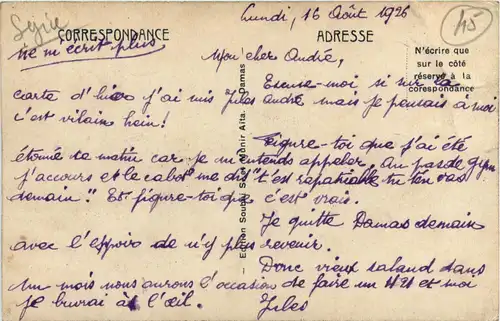 Syrie
ne m'écrit plus
CORRESPONDANCE
ADRESSE
N'écrire que
sur le côté
réservé à la
corespondance
15
Lundi, 16 Août 1926
Mon cher André,
Excuse-moi, si sur la
carte d'hier j'ai mis Jules André mais je pensais à moi
c'est vilain hein!
Figure-toi que j'ai été
étonné ce matin car je m'entends appeler. Au pas de gym
j'accours et le cabot me dit "t'es rapatriable tu t'en vas
demain". Et figure-toi que c'est vrai.
Je quitte Damas demain
avec l'espoir de n'y plus revenir.
Donc vieux salaud dans
un mois nous aurons l'occasion de faire un et moi
je boirai à l'œil.
Jules
— Edition Soubhi Saef Mönir Aïta. Damas